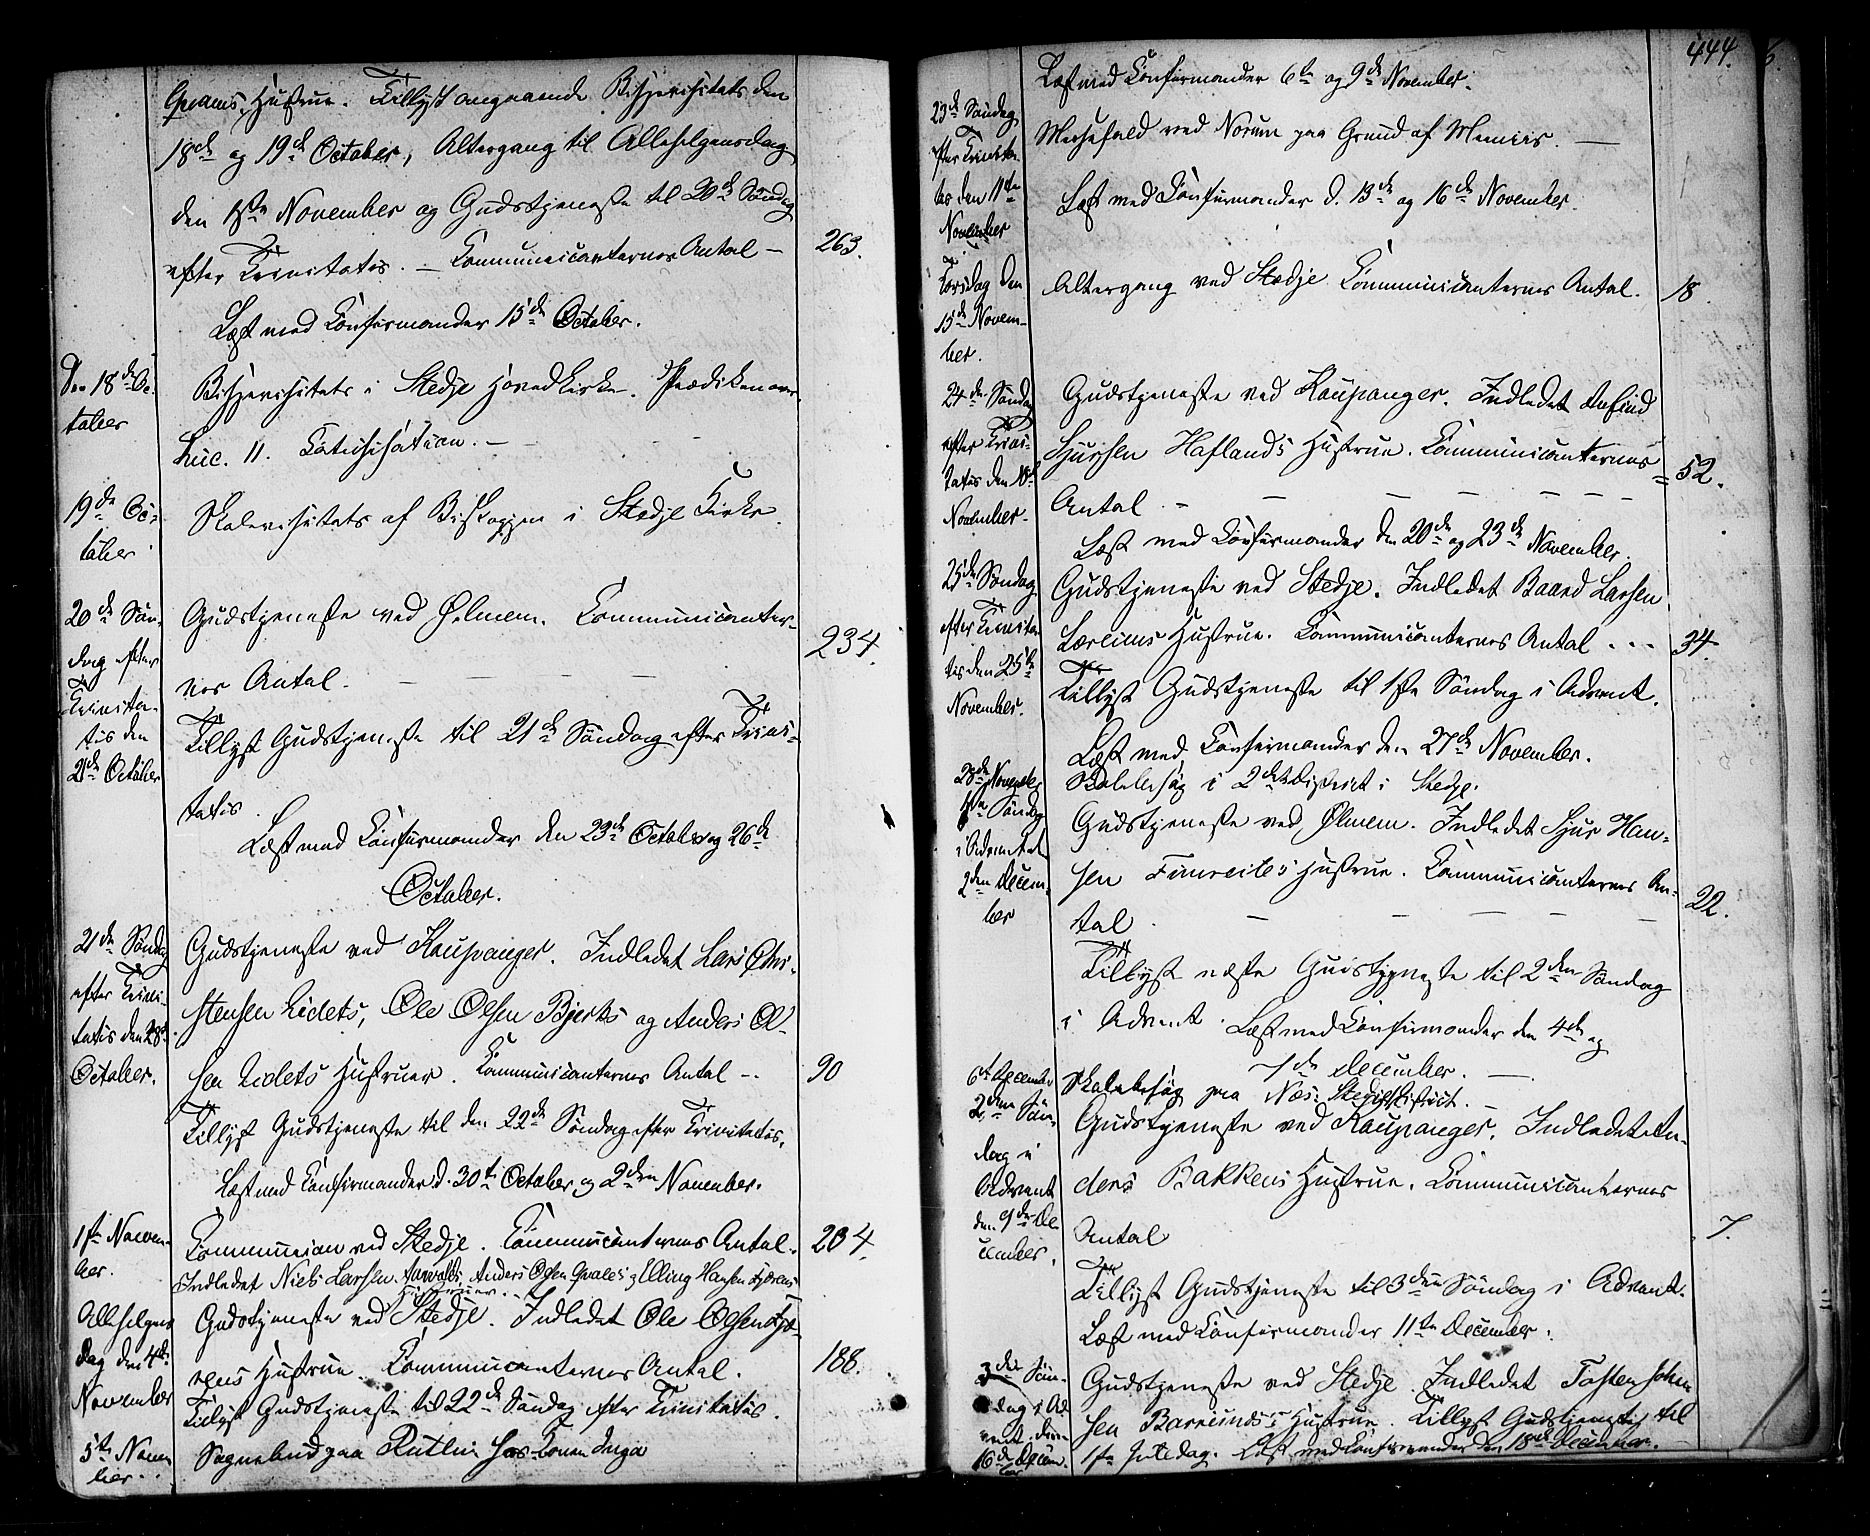 Qvams Hustrue. Tillyst angaaende Bispevisitats den
18de og 19de October, Altergang til Allehelgensdag
den 1ste November og Gudstjeneste til 20de Søndag
efter Trinitatis. — Communicanternes Antal —
263.
Læst med Confirmander 15de October.
Den 18de Oc-
tober
Bispevisitats i Stedje Hovedkirke. Prædiken over
Luc. 11. Catechisation. —
19de Oc-
tober
Skolevisitats af Biskoppen i Stedje Kirke.
20de Søn-
dag efter
Trinita-
tis den
21de October
Gudstjeneste ved Ølmem. Communicanter-
nes Antal. — — — —
234.
Tillyst Gudstjeneste til 21de Søndag efter Trini-
tatis.
Læst med Confirmander den 23de October og 26de
October.
21de Søndag
efter Trini-
tatis den 28de
October.
Gudstjeneste ved Kaupanger. Indledet Lars Chri-
stensen Eidets, Ole Olsen Bjerks og Anders Ol-
sen Eidets Hustruer. Communicanternes Antal —
90
Tillyst Gudstjeneste til den 22de Søndag efter Trinitatis.
Læst med Confirmander d. 30te October og 2den November.
1ste Novem-
ber.
Communion ved Stedje. Communicanternes Antal.
204.
Indledet Niels Larsen Anders Olsen Qvale's og Elling Hansen
Hustruer.
Allehelgens
dag den 4de
November
Gudstjeneste ved Stedje. Indledet Ole Olsen
Hustrue. Communicanternes Antal.
188.
Tillyst Gudstjeneste til 22de Søndag efter Trinitatis.
5te Novem-
ber.
Sognebud paa Rutlin hos Konen Inga
444.
6.
Læst med Confirmander 6te og 9de November.
23de Søndag
efter Trinita-
tis den 11te
November
Messefald ved Norum paa Grund af
Læst med Confirmander d. 13de og 16de November.
og
Torsdag den
15de Novem-
ber.
Altergang ved Stedje Communicanternes Antal.
18
24de Søndag
efter Trini-
tatis den 18de
November.
Gudstjeneste ved Kaupanger. Indledet Anfind
Sjursen Haflands Hustrue. Communicanternes
Antal. — — — — — — —
52.
Læst med Confirmander den 20de og 23de November.
25de Søndag
efter Trinita-
tis den 25de
November.
Gudstjeneste ved Stedje. Indledet Baard Larsen
Lereims Hustrue. Communicanternes Antal . . .
34.
Tillyst Gudstjeneste til 1ste Søndag i Advent.
Læst med Confirmander den 27de November.
28de November
Skolebesøg i 2det District i Stedje.
1ste Søndag
i Advent den
2den Decem-
ber
Gudstjeneste ved Ølmem. Indledet Sjur Han-
sen Fimreites Hustrue. Communicanternes An-
tal. — — — — —
22.
Tillyst næste Gudstjeneste til 2den Søndag
i Advent. Læst med Confirmander den 4de og
7de December. —
6te December
Skolebesøg paa Næs: Stedje District. —
2den Søn-
dag i
Advent
den 9de De-
cember.
Gudstjeneste ved Kaupanger. Indledet An-
ders Bakkens Hustrue. Communicanternes
Antal
7.
Tillyst Gudstjeneste til 3die Søndag i Advent.
Læst med Confirmander 11te December.
3die Søn-
dag i Ad-
vent den
16de Decem-
ber
Gudstjeneste ved Stedje. Indledet Tosten John-
sen Barsnæs's Hustrue. Tillyst Gudstjeneste til
1ste Juledag. Læst med Confirmander den 18de December. —